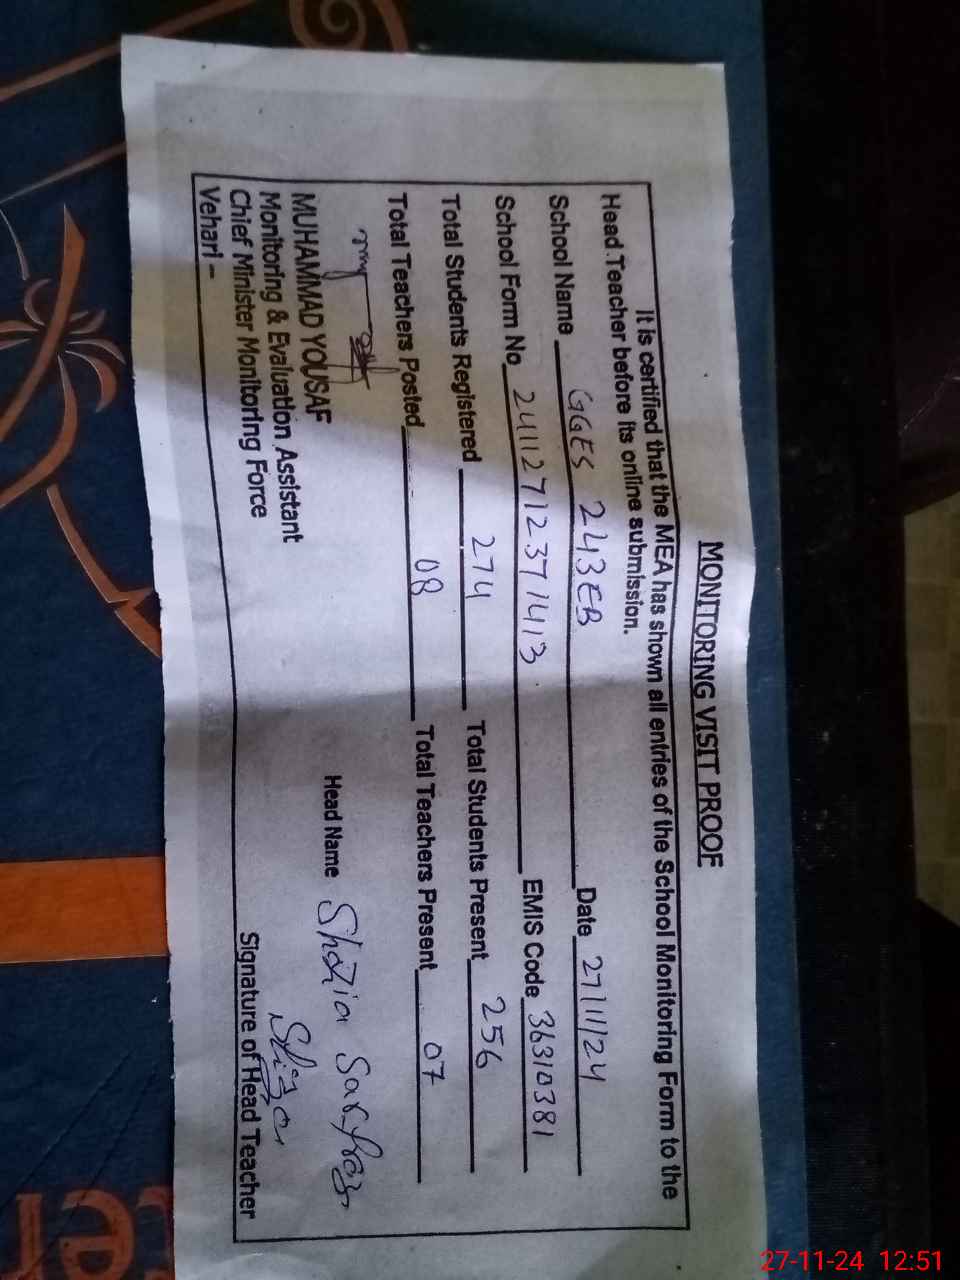 MONITORING VISIT PROOF
It is certified that the MEA has shown all entries of the School Monitoring Form to the
Head Teacher before its online submission.
School Name GGES 243EB Date 27/11/24
School Form No 24112712371413 EMIS Code 36310381
Total Students Registered 274 Total Students Present 256
Total Teachers Posted 08 Total Teachers Present 07
Head Name Shazia Sarfraz
MUHAMMAD YOUSAF
Monitoring & Evaluation Assistant
Chief Minister Monitoring Force
Vehari -
Signature of Head Teacher
27-11-24 12:51